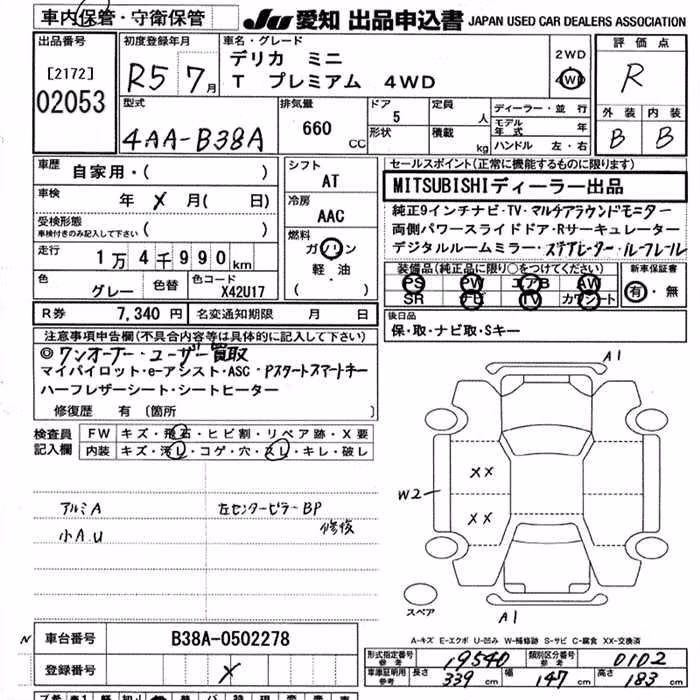 車内保管・守衛保管
JU 愛知 出品申込書 JAPAN USED CAR DEALERS ASSOCIATION
出品番号
[2172]
02053
初度登録年月
R5 7月
車名・グレード
デリカ ミニ
T プレミアム 4WD
2WD
4WD
評価点
R
外装 内装
B B
型式
4AA-B38A
排気量
660 CC
ドア 5
形状
定員 人
積載 kg
ディーラー・並行
モデル年式 年
ハンドル 左・右
車歴 自家用・( )
車検 年 メ 月( 日)
受検形態
車検付きのみ記入して下さい ( )
走行 1万4千990km
色 グレー 色替 色コード X42U17
シフト
AT
冷房
AAC
燃料
ガソリン
軽油
( )
セールスポイント(正常に機能するものに限ります)
MITSUBISHIディーラー出品
純正9インチナビ・TV・マルチアラウンドモニター
両側パワースライドドア・Rサーキュレーター
デジタルルームミラー・ステアヒーター・ルーフレール
装備品(純正品に限り○をつけてください)
PS PW エアB AW
SR ナビ TV カワシート
新車保証書
有・無
R券 7,340円 名変通知期限 月 日
後日品
保・取・ナビ取・Sキー
注意事項申告欄(不具合内容等は具体的に記入して下さい)
◎ワンオーナー・ユーザー買取
マイパイロット・e-アシスト・ASC・Pスタートスマートキー
ハーフレザーシート・シートヒーター
修復歴 有 〔箇所 〕
検査員記入欄
FW キズ・飛石・ヒビ割・リペア跡・X要
内装 キズ・汚レ・コゲ・穴・スレ・キレ・破レ
アルミA
小A.U
左センターピラーBP
修復
A1
W2
XX
XX
スペア
A1
A-キズ E-エクボ U-凹み W-補修跡 S-サビ C-腐食 XX-交換済
N
車台番号 B38A-0502278
登録番号 メ
形式指定番号 参考 19540 類別区分番号 参考 0102
車庫証明用 参考 長さ 339 cm 幅 147 cm 高さ 183 cm